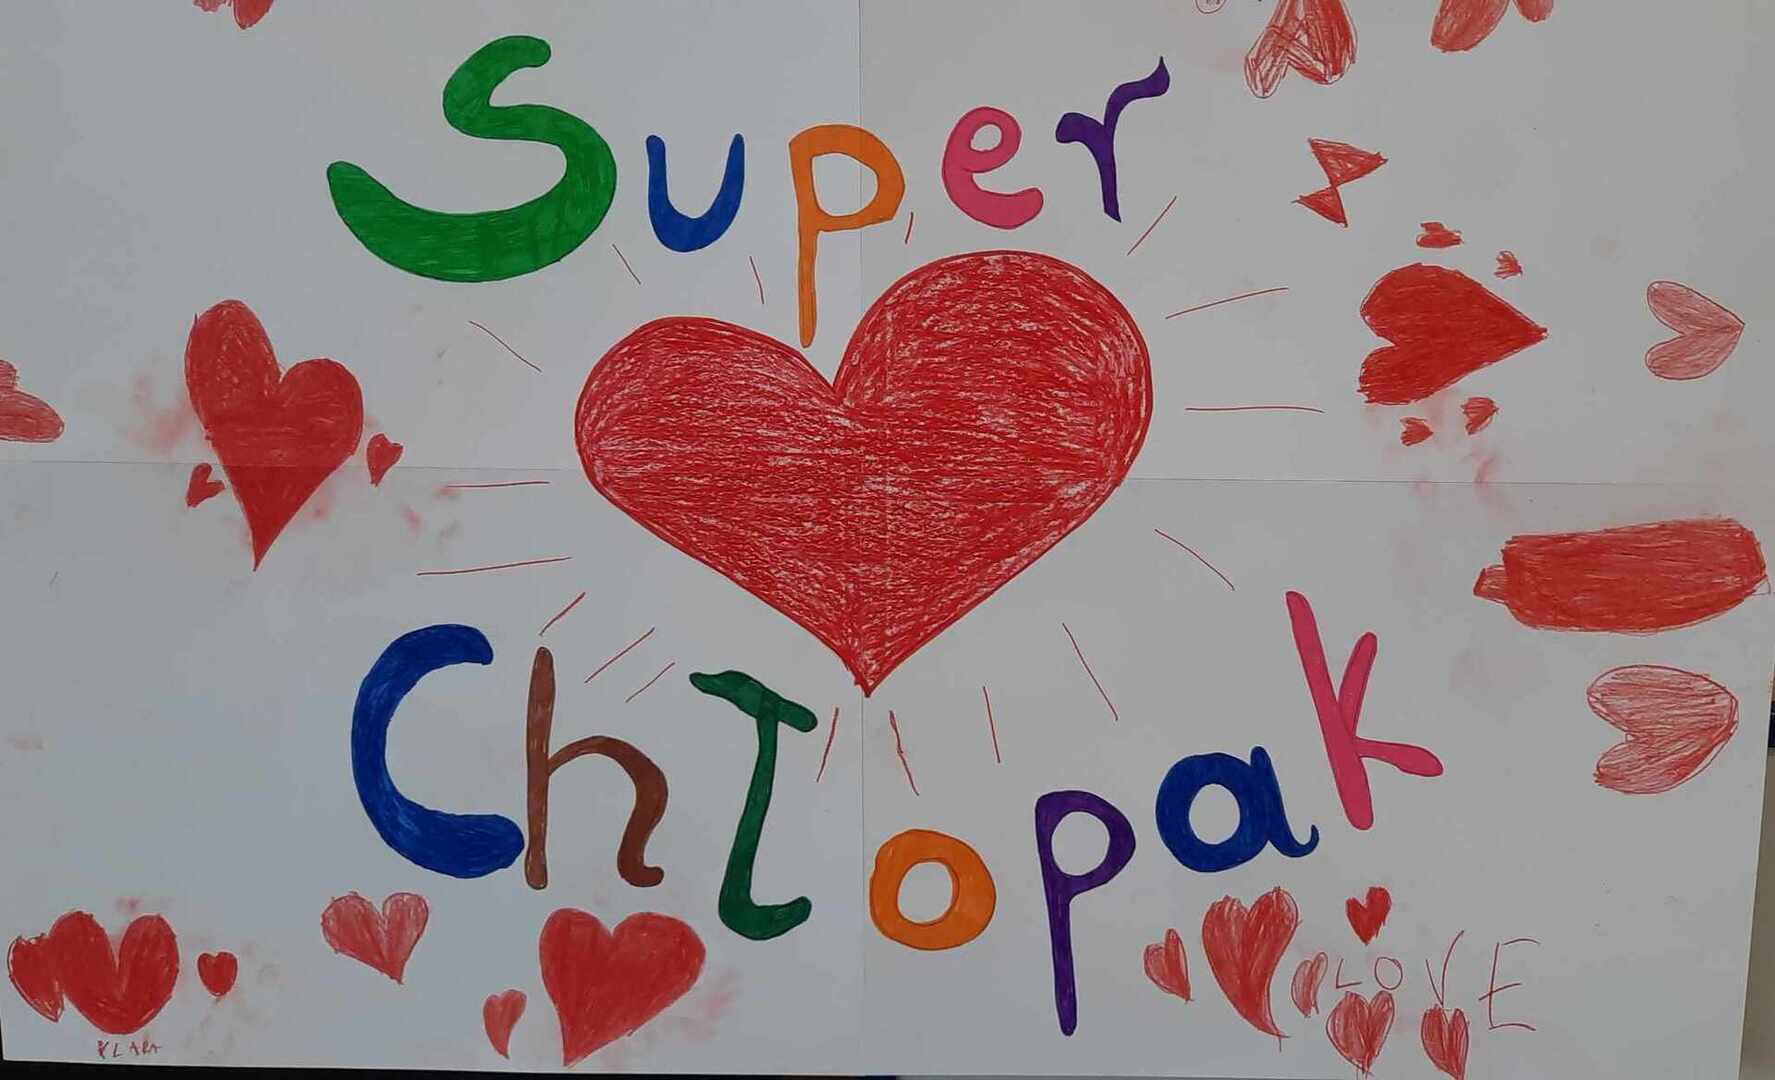 Super
Chłopak
LOVE
KLARA